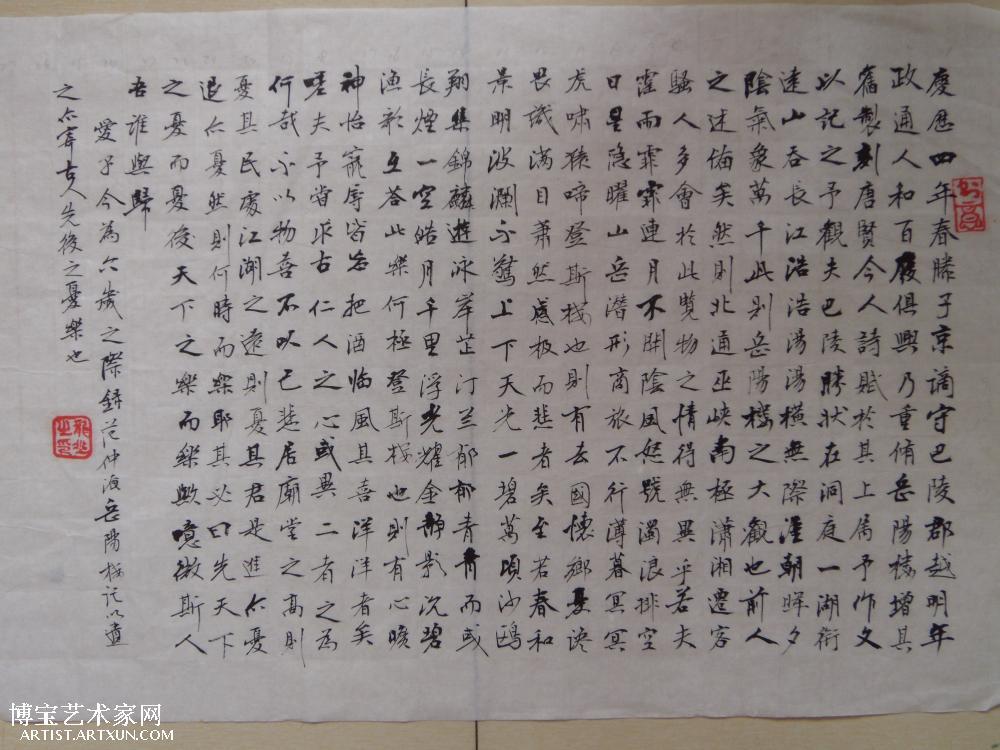 慶歷四年春滕子京謫守巴陵郡越明年
政通人和百廢俱興乃重脩岳陽樓增其
舊製刻唐賢今人詩賦於其上属予作文
以記之予觀夫巴陵勝狀在洞庭一湖銜
遠山吞長江浩浩湯湯橫無際涯朝暉夕
陰氣象萬千此則岳陽樓之大觀也前人
之述備矣然則北通巫峽南極瀟湘遷客
騷人多會於此覽物之情得無異乎若夫
霪雨霏霏連月不開陰風怒號濁浪排空
日星隐曜山岳潛形商旅不行薄暮冥冥
虎嘯猿啼登斯楼也則有去國懷鄉憂讒
畏譏滿目蕭然感极而悲者矣至若春和
景明波瀾不驚上下天光一碧萬頃沙鷗
翔集錦鱗遊泳岸芷汀兰郁郁青青而或
長煙一空皓月千里浮光耀金靜影沉碧
渔歌互荅此樂何極登斯楼也則有心曠
神怡寵辱皆忘把酒临風其喜洋洋者矣
嗟夫予嘗求古仁人之心或異二者之為
何哉不以物喜不以己悲居廟堂之高則
憂其民處江湖之遠則憂其君是進亦憂
退亦憂然則何時而樂耶其必曰先天下
之憂而憂後天下之樂而樂歟噫微斯人
吾誰與歸
愛子今為六歲之際録范仲淹岳陽楼記以遺
之亦寄古人先後之憂樂也
博宝艺术家网
ARTIST.ARTXUN.COM